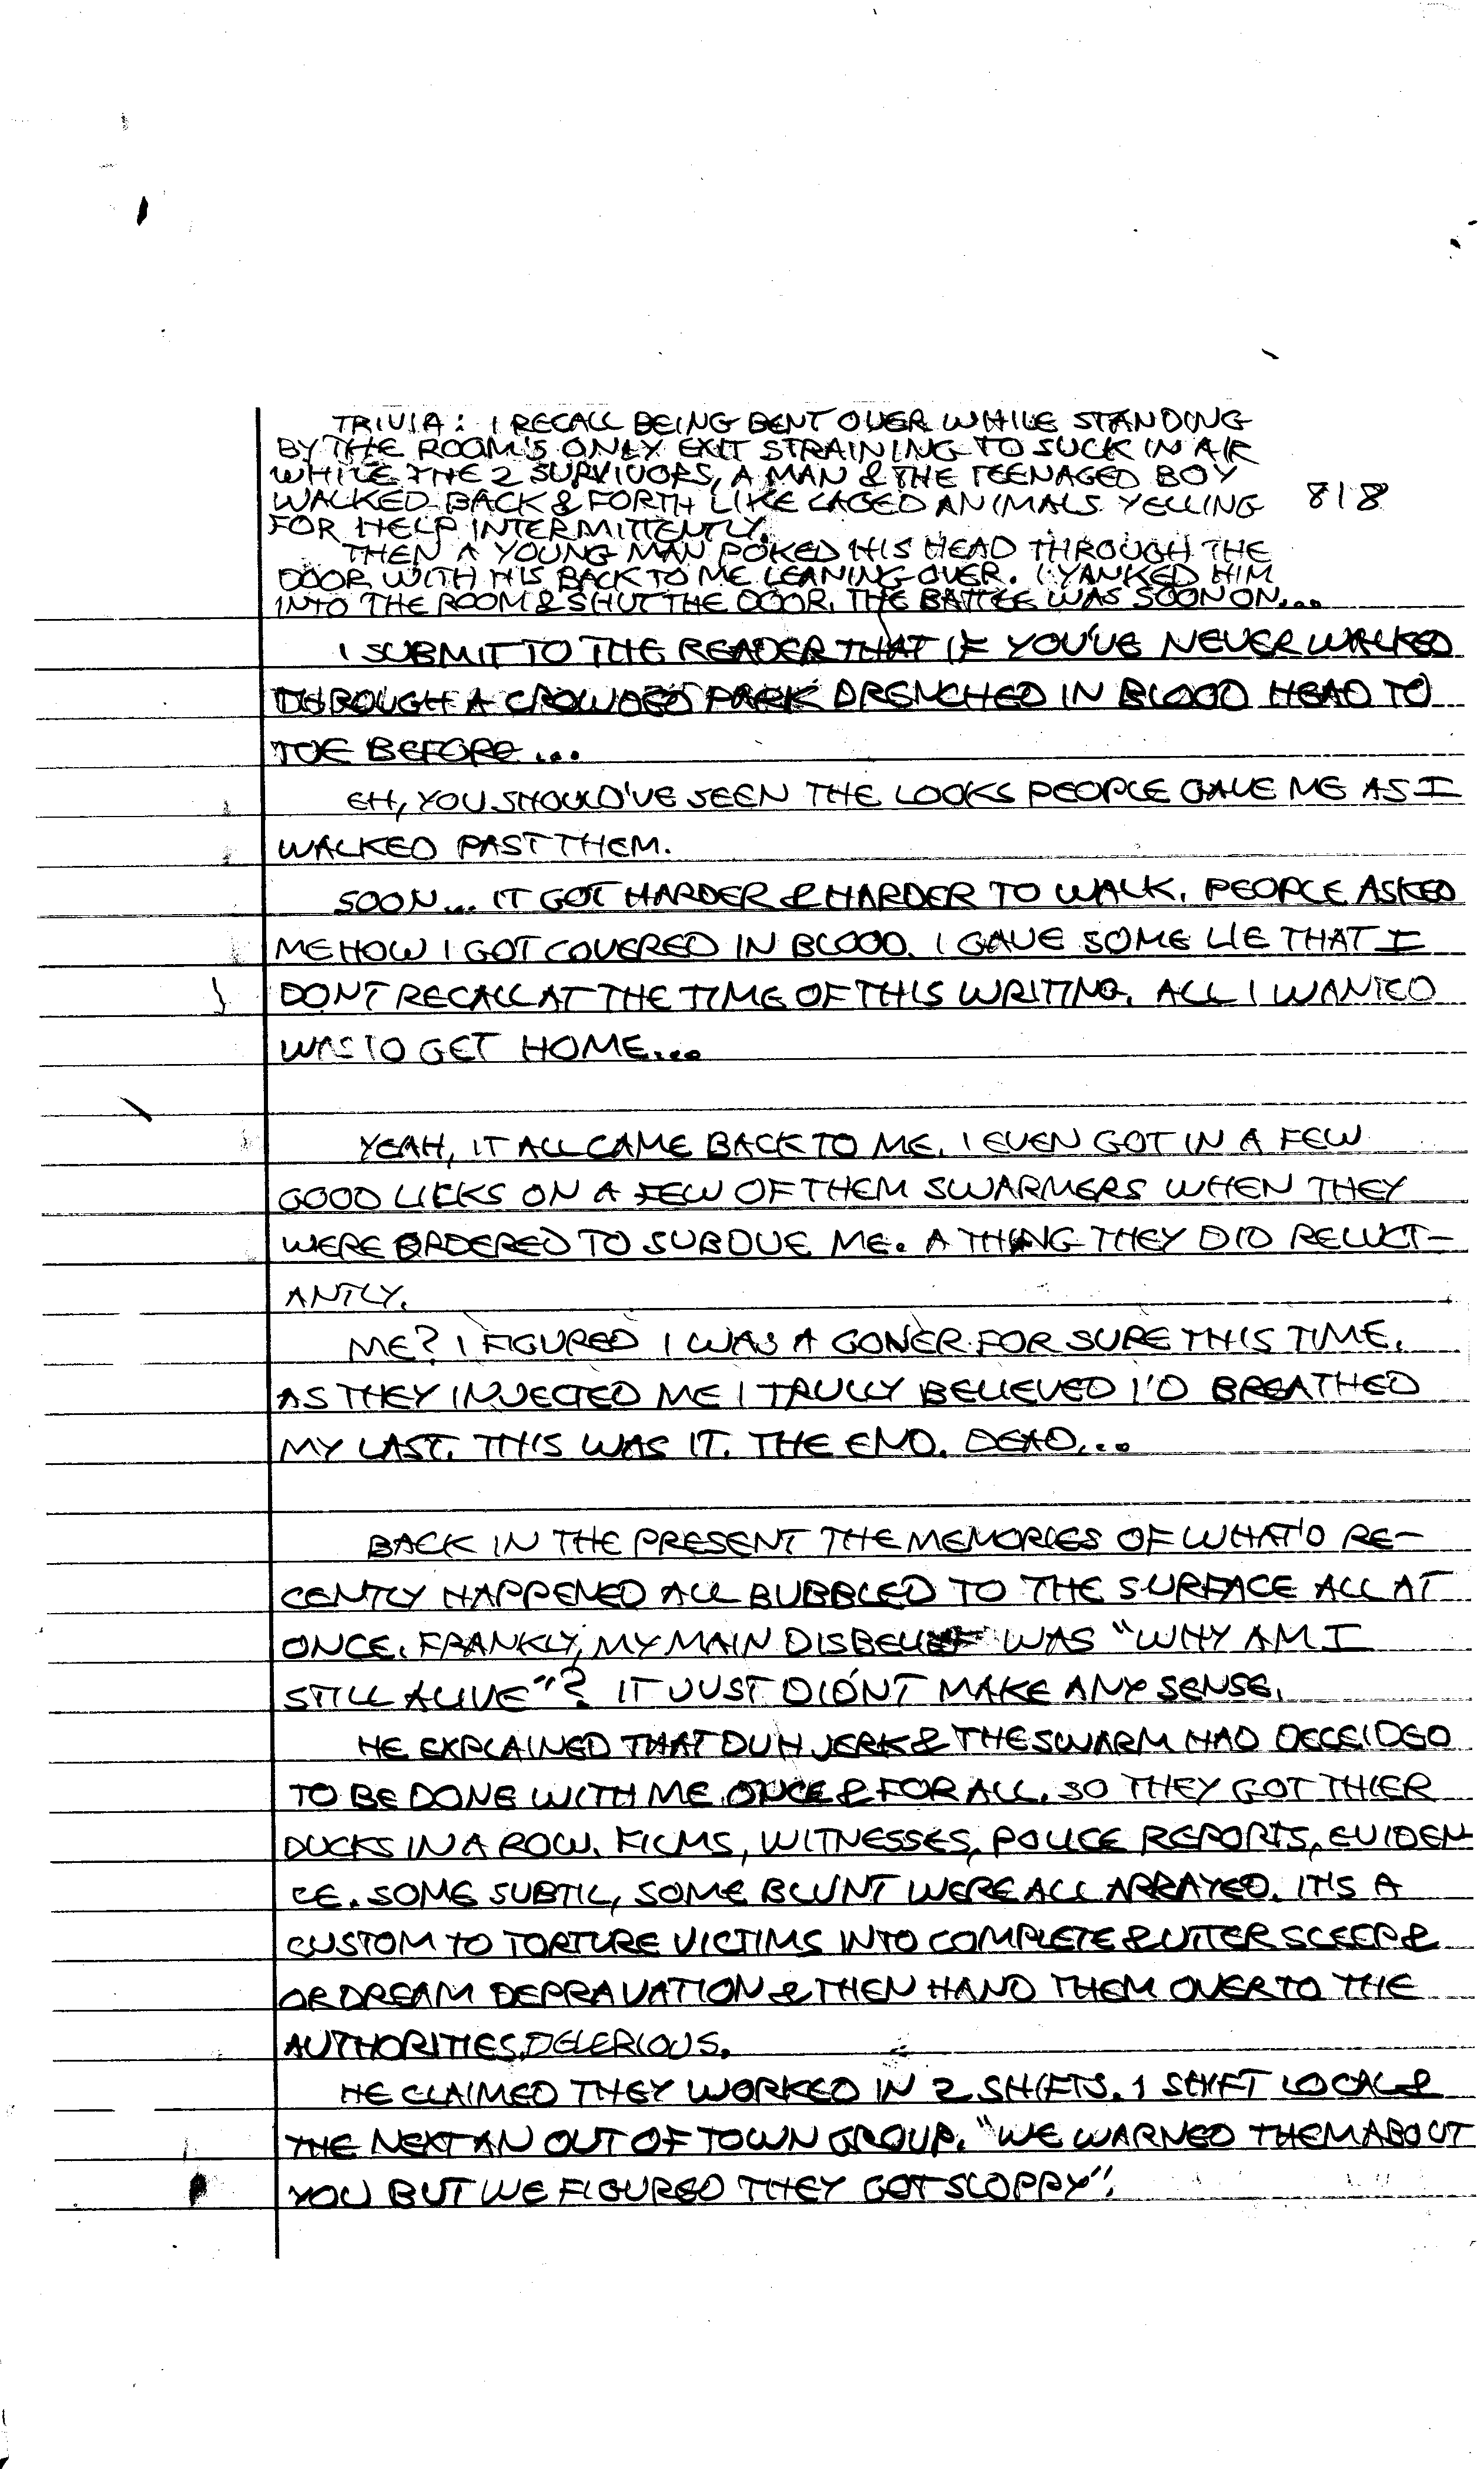 TRIVIA: I RECALL BEING BENT OVER WHILE STANDING
BY THE ROOM'S ONLY EXIT STRAINING TO SUCK IN AIR
WHILE THE 2 SURVIVORS, A MAN & THE TEENAGED BOY
WALKED BACK & FORTH LIKE CAGED ANIMALS YELLING
818
FOR HELP INTERMITTENTLY.
THEN A YOUNG MAN POKED HIS HEAD THROUGH THE
DOOR WITH HIS BACK TO ME LEANING OVER. I YANKED HIM
INTO THE ROOM & SHUT THE DOOR. THE BATTLE WAS SOON ON...
I SUBMIT TO THE READER THAT IF YOU'VE NEVER WALKED
THROUGH A CROWDED PARK DRENCHED IN BLOOD HEAD TO
TOE BEFORE...
EH, YOU SHOULD'VE SEEN THE LOOKS PEOPLE GAVE ME AS I
WALKED PAST THEM.
SOON... IT GOT HARDER & HARDER TO WALK. PEOPLE ASKED
ME HOW I GOT COVERED IN BLOOD. I GAVE SOME LIE THAT I
DON'T RECALL AT THE TIME OF THIS WRITING. ALL I WANTED
WAS TO GET HOME...
YEAH, IT ALL CAME BACK TO ME. I EVEN GOT IN A FEW
GOOD LICKS ON A FEW OF THEM SWARMERS WHEN THEY
WERE ORDERED TO SUBDUE ME. A THING THEY DID RELUCT-
ANTLY.
ME? I FIGURED I WAS A GONER FOR SURE THIS TIME.
AS THEY INJECTED ME I TRULLY BELIEVED I'D BREATHED
MY LAST. THIS WAS IT. THE END. DEAD...
BACK IN THE PRESENT THE MEMORIES OF WHAT'D RE-
CENTLY HAPPENED ALL BUBBLED TO THE SURFACE ALL AT
ONCE. FRANKLY, MY MAIN DISBELIEF WAS "WHY AM I
STILL ALIVE"? IT JUST DIDN'T MAKE ANY SENSE.
HE EXPLAINED THAT DUH JERK & THE SWARM HAD DECEIDED
TO BE DONE WITH ME ONCE & FOR ALL. SO THEY GOT THIER
DUCKS IN A ROW. FILMS, WITNESSES, POLICE REPORTS, EVIDEN-
CE. SOME SUBTIL, SOME BLUNT WERE ALL ARRAYED. IT'S A
CUSTOM TO TORTURE VICTIMS INTO COMPLETE & UTTER SLEEP &
OR DREAM DEPRAVATION & THEN HAND THEM OVER TO THE
AUTHORITIES, DELERIOUS.
HE CLAIMED THEY WORKED IN 2 SHIFTS. 1 SHIFT LOCAL &
THE NEXT AN OUT OF TOWN GROUP. "WE WARNED THEM ABOUT
YOU BUT WE FIGURED THEY GOT SLOPPY".